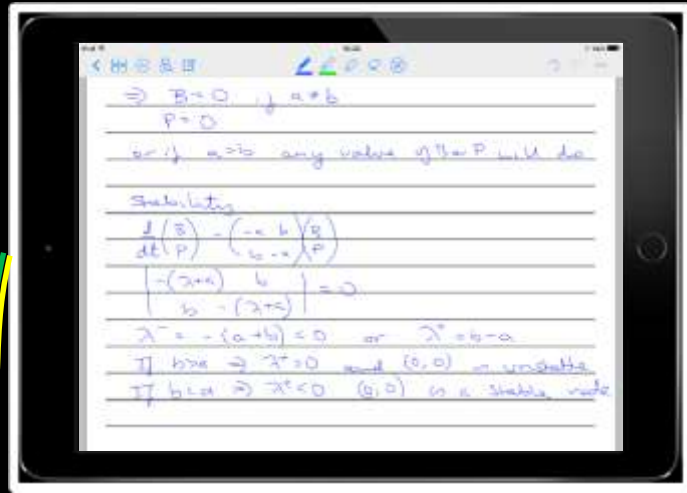 ⇒ B=0 if a≠b
P=0
or if a=b any value of B or P will do
Stability
d/dt (B P) = (-a b b -a)(B P)
|-(λ+a) b b -(λ+a)| = 0
λ⁻ = -(a+b) < 0 or λ⁺ = b-a
If b>a ⇒ λ⁺>0 and (0,0) is unstable
If b<a ⇒ λ⁺<0 (0,0) is a stable node